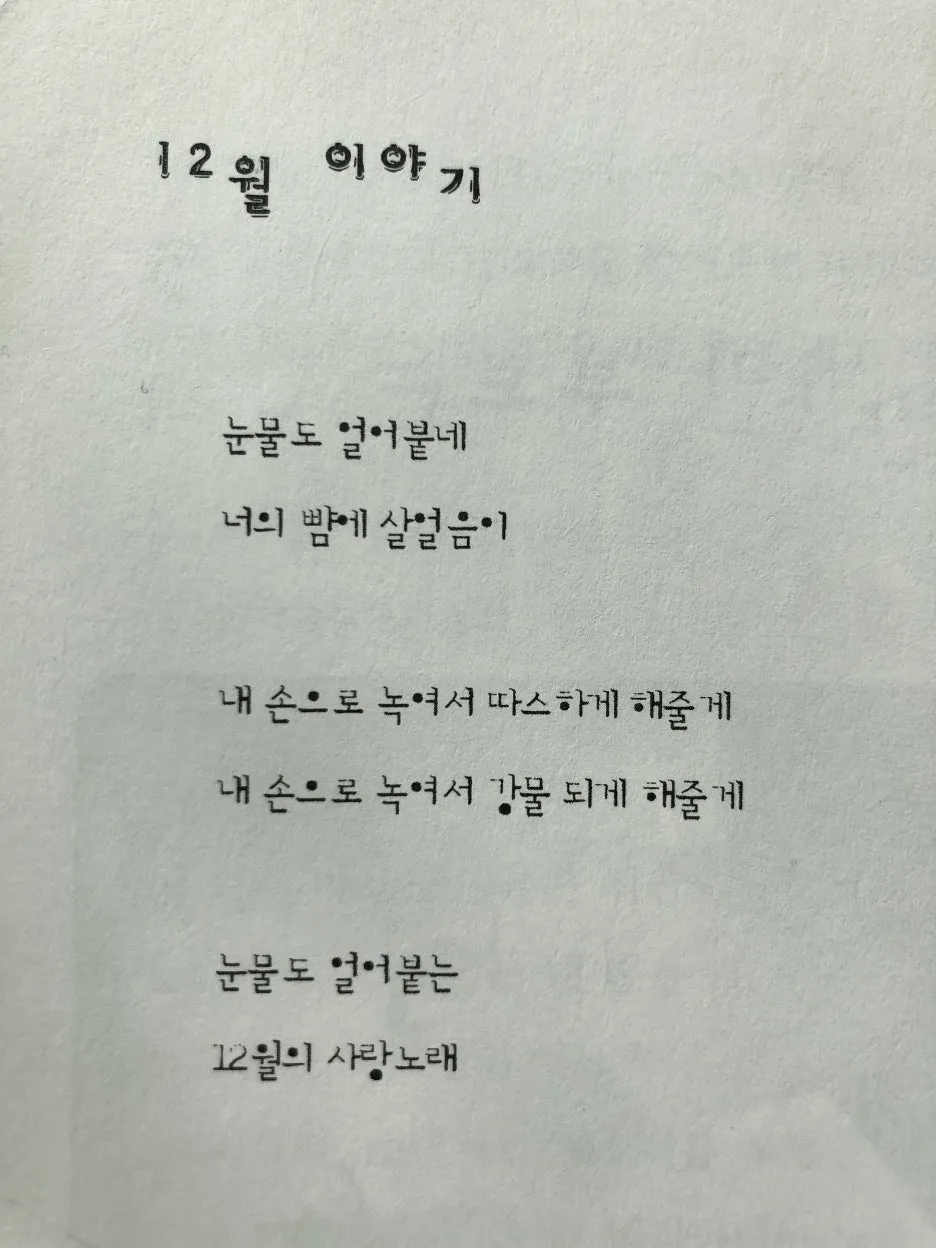 12월 이야기
눈물도 얼어붙네
너의 뺨에 살얼음이
내 손으로 녹여서 따스하게 해줄게
내 손으로 녹여서 강물 되게 해줄게
눈물도 얼어붙는
12월의 사랑노래